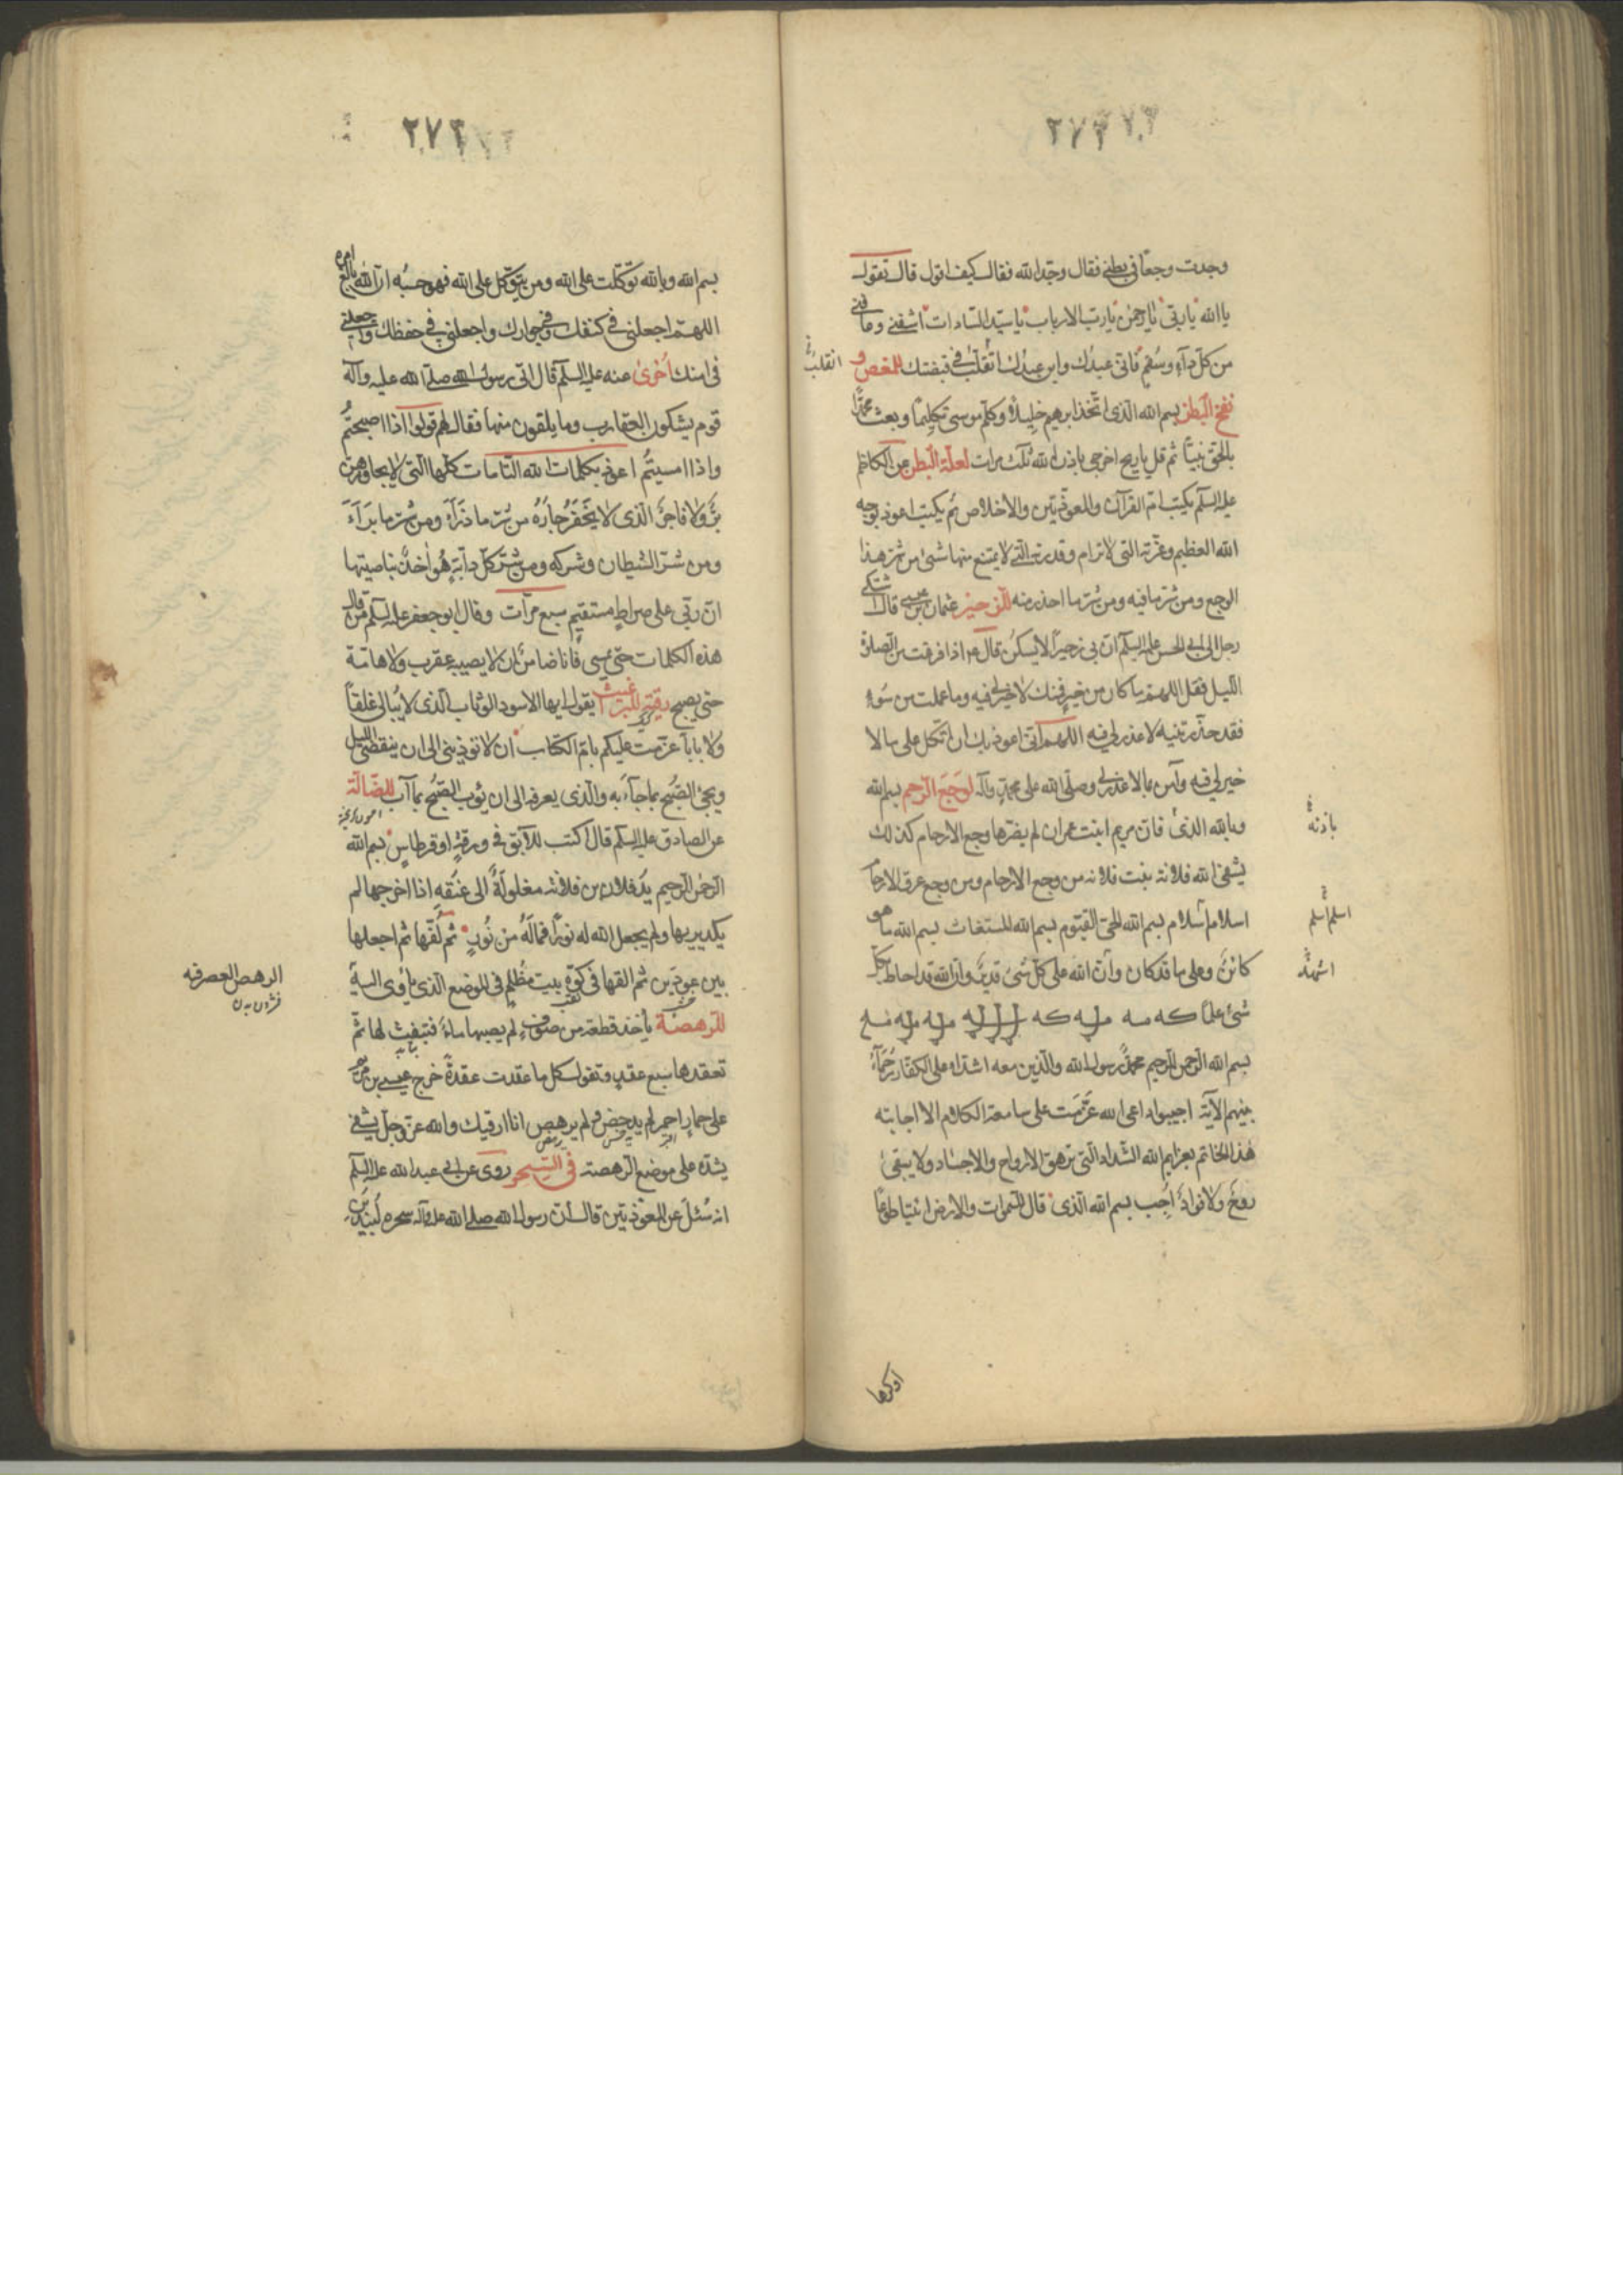 ٢٧٣
وجدت وجعًا فى بطنى فقال وحّد الله فقال كيف اقول قال تقول
يا الله يا ربّى يا رحمن يا ربّ الارباب يا سيّد السّادات اشفنى وعافنى
من كلّ داءٍ وسُقمٍ فانّى عبدُك وابن عبدِك اتقلّبُ فى قبضتك للمغص و
انقلب
نفخ البَطن بسم الله الّذى اتّخذ ابرهيم خليلًا وكلّم موسى تكليمًا وبعث محمّدًا
بالحقّ نبيًّا ثم قل يا ريح اخرجى باذن الله ثلث مرات لعلّة البطن عن الكاظم
عليه السلم يكتب امّ القرآن والمعوّذتين والاخلاص ثم يكتب اعوذ بوجه
الله العظيم وعزّته التى لا ترام وقدرته التى لا يمتنع منها شئ من شرّ هذا
الوجع ومن شرّ ما فيه ومن شرّ ما احذر منه للزحيز عثمان بن عيسى قال شكى
رجل الى ابى الحسن عليه السلم انّ بى زحيرًا لا يسكن قال اذا فرغت من صلوة
اللّيل فقل اللهمّ ما كان من خيرٍ فمنك لا خير لى فيه وما عملت من سُوءٍ
فقد حذّرتنيه لا عذر لى فيه اللّهمّ انّى اعوذ بك ان اتّكل على ما لا
خير لى فيه وآمن ما لا عذر لى وصلّى الله على محمّدٍ وآله لوَجَع الرّحم بسم الله
وبالله الذى فانّ مريم ابنت عمران لم يضرّها وجع الارحام كذلك
باذنه
يشفى الله فلانة بنت فلانة من وجع الارحام ومن وجع عرق الارحام
اسلام اسلام بسم الله الحىّ القيّوم بسم الله المستغاث بسم الله ما هو
اسلم اسلم
كائنٌ وعلى ما قد كان وانّ الله على كلّ شئ قديرٌ وانّ الله قد احاط بكلّ
اشهد
شئ علمًا
بسم الله الرّحمن الرّحيم محمّدٌ رسول الله والّذين معه اشدّاء على الكفّار رُحَمآءُ
بينهم الآية اجيبوا داعى الله عَزَمت على سامعة الكلام الا اجابته
هذا الخاتم بعزايم الله الشّداد الّتى تزهق الارواح والاجساد ولا يبقى
روحٌ ولا فوادٌ اجِب بسم الله الّذى قال للسّموات والارض ائتيا طوعًا
اوكرها
٢٧٣
بسم الله وبالله توكّلت على الله ومن يتوكّل على الله فهو حسبُه انّ الله بالغ امره
اللهمّ اجعلنى فى كنفك وفى جوارك واجعلنى فى حفظك واجعلنى
فى امنك اُخرىٰ عنه عليه السلم قال اتى رسول الله صلّى الله عليه وآله
قوم يشكون العقارب وما يلقون منها فقال لهم قولوا اذا اصبحتمُ
واذا امسيتُم اعوذ بكلمات الله التّامات كلّها الّتى لا يجاوزهن
برٌّ ولا فاجرٌ الّذى لا يُخفَر جارُهُ من شرّ ما ذرَأَ ومن شرّ ما بَرَأَ
ومن شرّ الشيطان وشركه ومن شرّ كلّ دابّةٍ هو آخذٌ بناصيتها
انّ ربّى على صراطٍ مستقيم سبع مرّات وقال ابو جعفر عليه السلم من قال
هذه الكلمات حتى يمسى فانا ضامنٌ ان لا يصيبه عقرب ولا هامّة
حتى يصبح رقية للبرغيث يقول ايها الاسود الوثاب الذى لا يُبالى غلقًا
ولا بابًا عزمت عليكم بامّ الكتاب ان لا تؤذينى الى ان ينقضى الليل
ويجئ الصّبح بما جآءَ به والّذى يعرفه الى ان يؤب الصُّبح بما آب للضّالّة
عن الصادق عليه السلم قال اكتب للآبق فى ورقةٍ او قرطاسٍ بسم الله
الرّحمن الرّحيم يد فلان بن فلانة مغلولةٌ الى عنقه اذا اخرجها لم
يكد يريها ولم يجعل الله له نورًا فما له من نُورٍ ثم لُفّها ثم اجعلها
بين عودين ثم القها فى كوّة بيت مظلمٍ فى الموضع الّذى يأوى اليه
الرهص العصر فيه
للرّهصة يأخذ قطعة من صوفٍ لم يصبها ماءٌ فتنفث لها ثمّ
تعقدها سبع عقدٍ وتقول كل ما عقدت عقدةً خرج عيسى بن مريم
على حمارٍ احمر لم يدحض ولم يرهص انا ارقيك والله عزّ وجلّ يشفى
يشدّه على موضع الرّهصة فى السِّحر روى عن ابى عبد الله عليه السلم
انه سُئل عن المعوّذتين قال انّ رسول الله صلى الله عليه وآله سحره لبيد بن